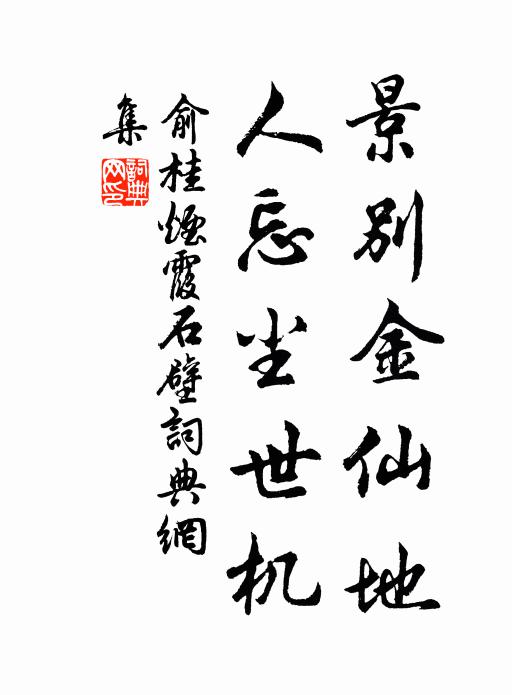 景别金仙地
人忘尘世机
俞桂煙霞石壁詞典網
集
詞典
网印